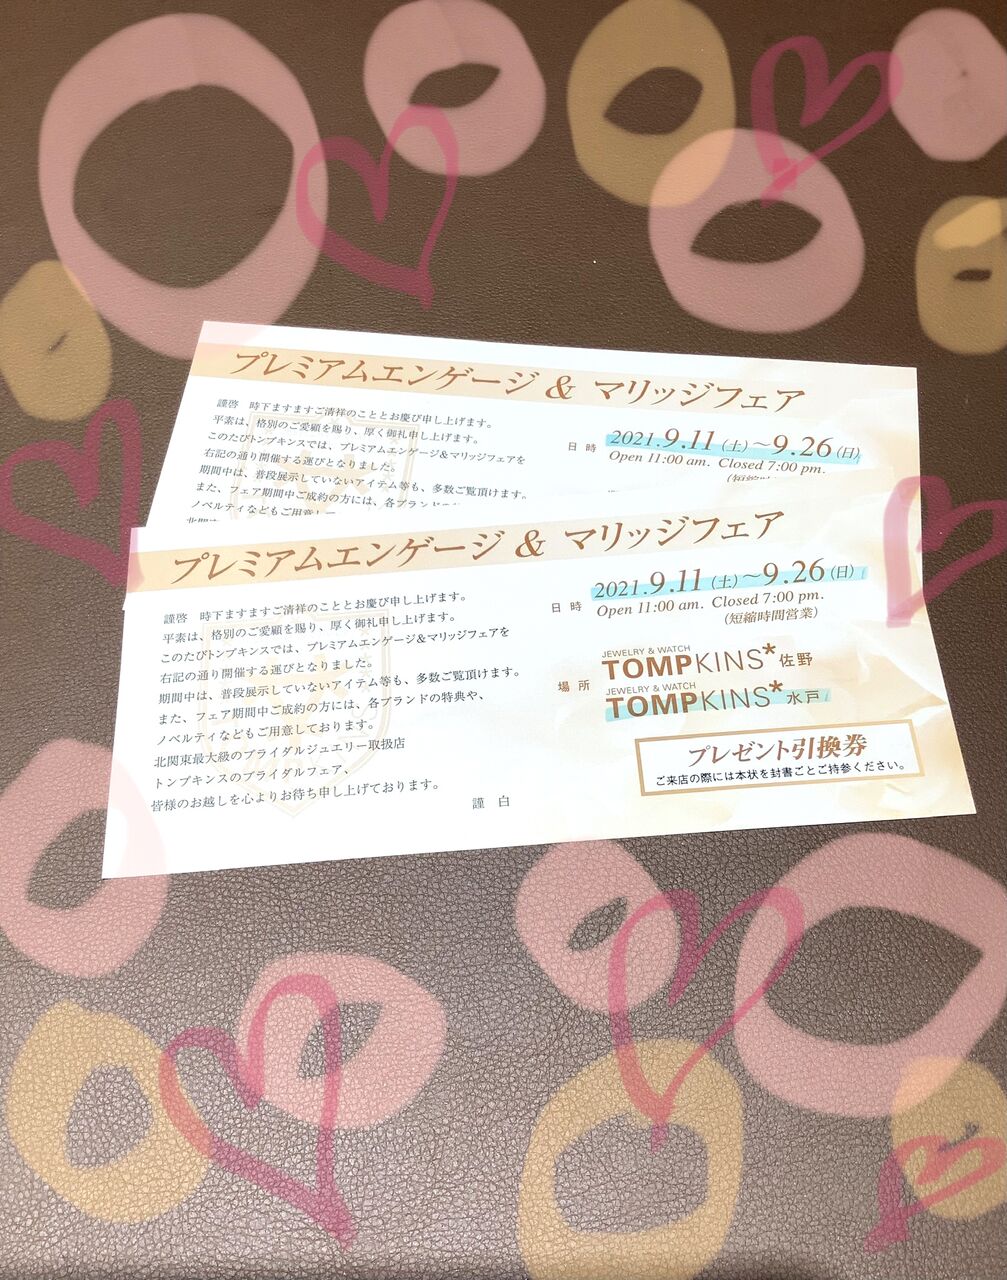 プレミアムエンゲージ & マリッジフェア
謹啓 時下ますますご清祥のこととお慶び申し上げます。
平素は、格別のご愛顧を賜り、厚く御礼申し上げます。
このたびトンプキンスでは、プレミアムエンゲージ&マリッジフェアを
右記の通り開催する運びとなりました。
期間中は、普段展示していないアイテム等も、多数ご覧頂けます。
また、フェア期間中ご成約の方には、各ブランドの
ノベルティなどもご用意して
日時 2021.9.11(土)〜9.26(日)
Open 11:00 am. Closed 7:00 pm.
プレミアムエンゲージ & マリッジフェア
謹啓 時下ますますご清祥のこととお慶び申し上げます。
平素は、格別のご愛顧を賜り、厚く御礼申し上げます。
このたびトンプキンスでは、プレミアムエンゲージ&マリッジフェアを
右記の通り開催する運びとなりました。
期間中は、普段展示していないアイテム等も、多数ご覧頂けます。
また、フェア期間中ご成約の方には、各ブランドの特典や、
ノベルティなどもご用意しております。
北関東最大級のブライダルジュエリー取扱店
トンプキンスのブライダルフェア、
皆様のお越しを心よりお待ち申し上げております。
謹 白
日時 2021.9.11(土)〜9.26(日)
Open 11:00 am. Closed 7:00 pm.
(短縮時間営業)
場所
JEWELRY & WATCH
TOMPKINS* 佐野
JEWELRY & WATCH
TOMPKINS* 水戸
プレゼント引換券
ご来店の際には本状を封書ごとご持参ください。